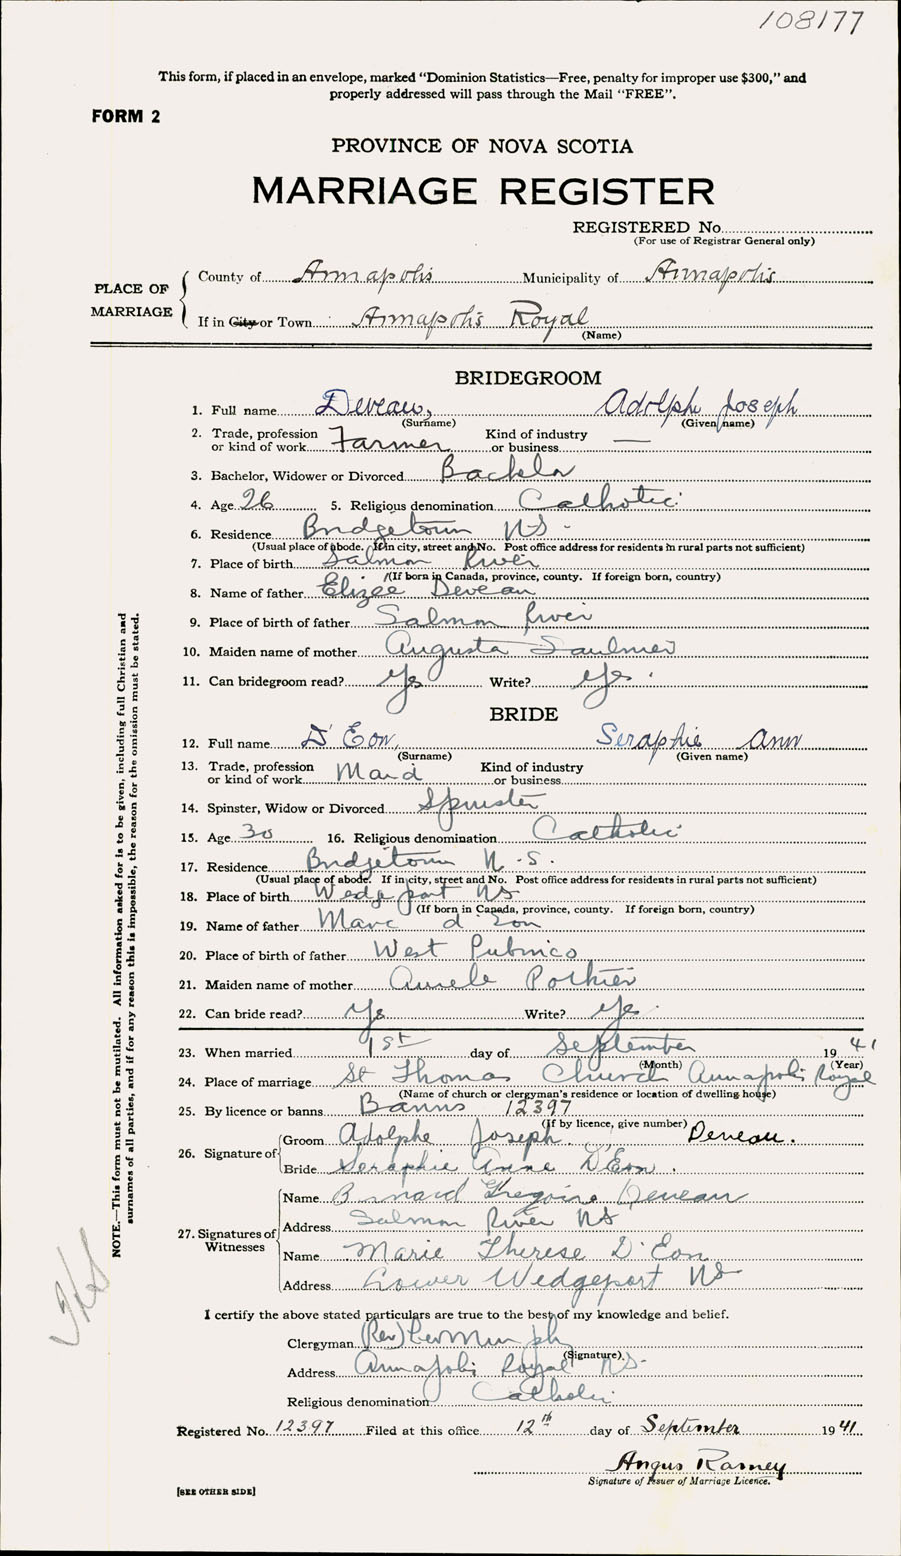 108177
This form, if placed in an envelope, marked "Dominion Statistics—Free, penalty for improper use $300," and
properly addressed will pass through the Mail "FREE".
FORM 2
PROVINCE OF NOVA SCOTIA
MARRIAGE REGISTER
REGISTERED No.
(For use of Registrar General only)
PLACE OF MARRIAGE
County of Annapolis Municipality of Annapolis
If in City or Town Annapolis Royal
(Name)
BRIDEGROOM
1. Full name Deveau, Adolphe Joseph
(Surname) (Given name)
2. Trade, profession or kind of work Farmer Kind of industry or business —
3. Bachelor, Widower or Divorced Bachelor
4. Age 26 5. Religious denomination Catholic
6. Residence Bridgetown NS
(Usual place of abode. If in city, street and No. Post office address for residents in rural parts not sufficient)
7. Place of birth Salmon River
(If born in Canada, province, county. If foreign born, country)
8. Name of father Elizee Deveau
9. Place of birth of father Salmon River
10. Maiden name of mother Augusta Saulnier
11. Can bridegroom read? Yes Write? Yes.
BRIDE
12. Full name D'Eon, Seraphie Ann
(Surname) (Given name)
13. Trade, profession or kind of work Maid Kind of industry or business
14. Spinster, Widow or Divorced Spinster
15. Age 30 16. Religious denomination Catholic
17. Residence Bridgetown N.S.
(Usual place of abode. If in city, street and No. Post office address for residents in rural parts not sufficient)
18. Place of birth Wedgeport NS
(If born in Canada, province, county. If foreign born, country)
19. Name of father Marc d'Eon
20. Place of birth of father West Pubnico
21. Maiden name of mother Pothier
22. Can bride read? Yes Write? Yes.
23. When married 1st day of September 1941
(Month) (Year)
24. Place of marriage St Thomas Church Annapolis Royal
(Name of church or clergyman's residence or location of dwelling house)
25. By licence or banns Banns 12397
(If by licence, give number)
26. Signature of
Groom Adolphe Joseph Deveau.
Bride Seraphie Anne D'Eon.
27. Signatures of Witnesses
Name Bernard Gregoire Deveau
Address Salmon River NS
Name Marie Therese D'Eon
Address Lower Wedgeport NS
I certify the above stated particulars are true to the best of my knowledge and belief.
Clergyman (Rev)
(Signature)
Address Annapolis Royal N.S.
Religious denomination Catholic
Registered No. 12397 Filed at this office 12th day of September 1941
Angus Ramey
Signature of Issuer of Marriage Licence.
[SEE OTHER SIDE]
NOTE.—This form must not be mutilated. All information asked for is to be given, including full Christian and
surnames of all parties, and if for any reason this is impossible, the reason for the omission must be stated.